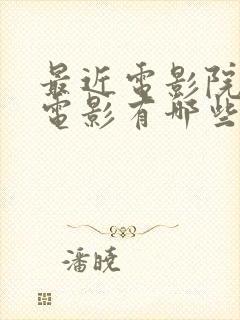 最近電影院
電影有哪些
潘曉